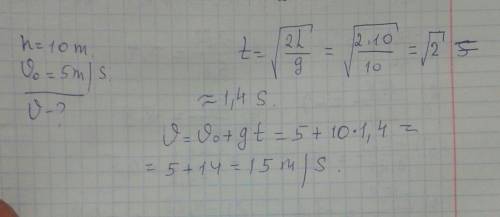 h=10m.
ϑ₀=5m/s.
ϑ-?
t=√(2h/g)=√(2·10/10)=√2
≈1,4 s.
ϑ=ϑ₀+gt=5+10·1,4=
=5+14=15m/s.